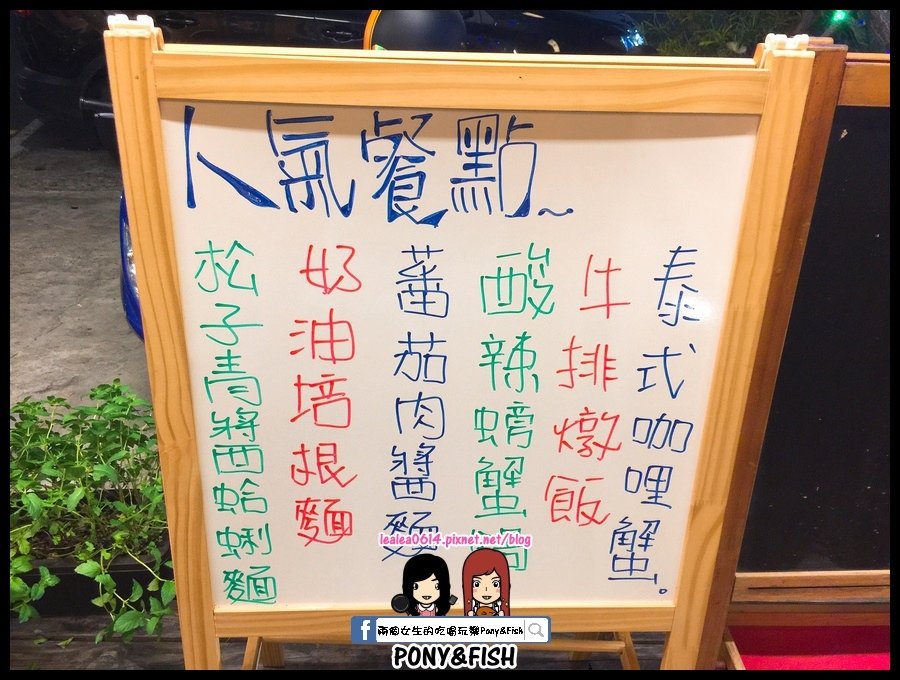 人氣餐點~
泰式咖哩蟹。
牛排燉飯
酸辣螃蟹
蕃茄肉醬麵
奶油培根麵
松子青醬蛤蜊麵
lealea0614.pixnet.net/blog
f 兩個女生的吃喝玩樂Pony&Fish
PONY&FISH